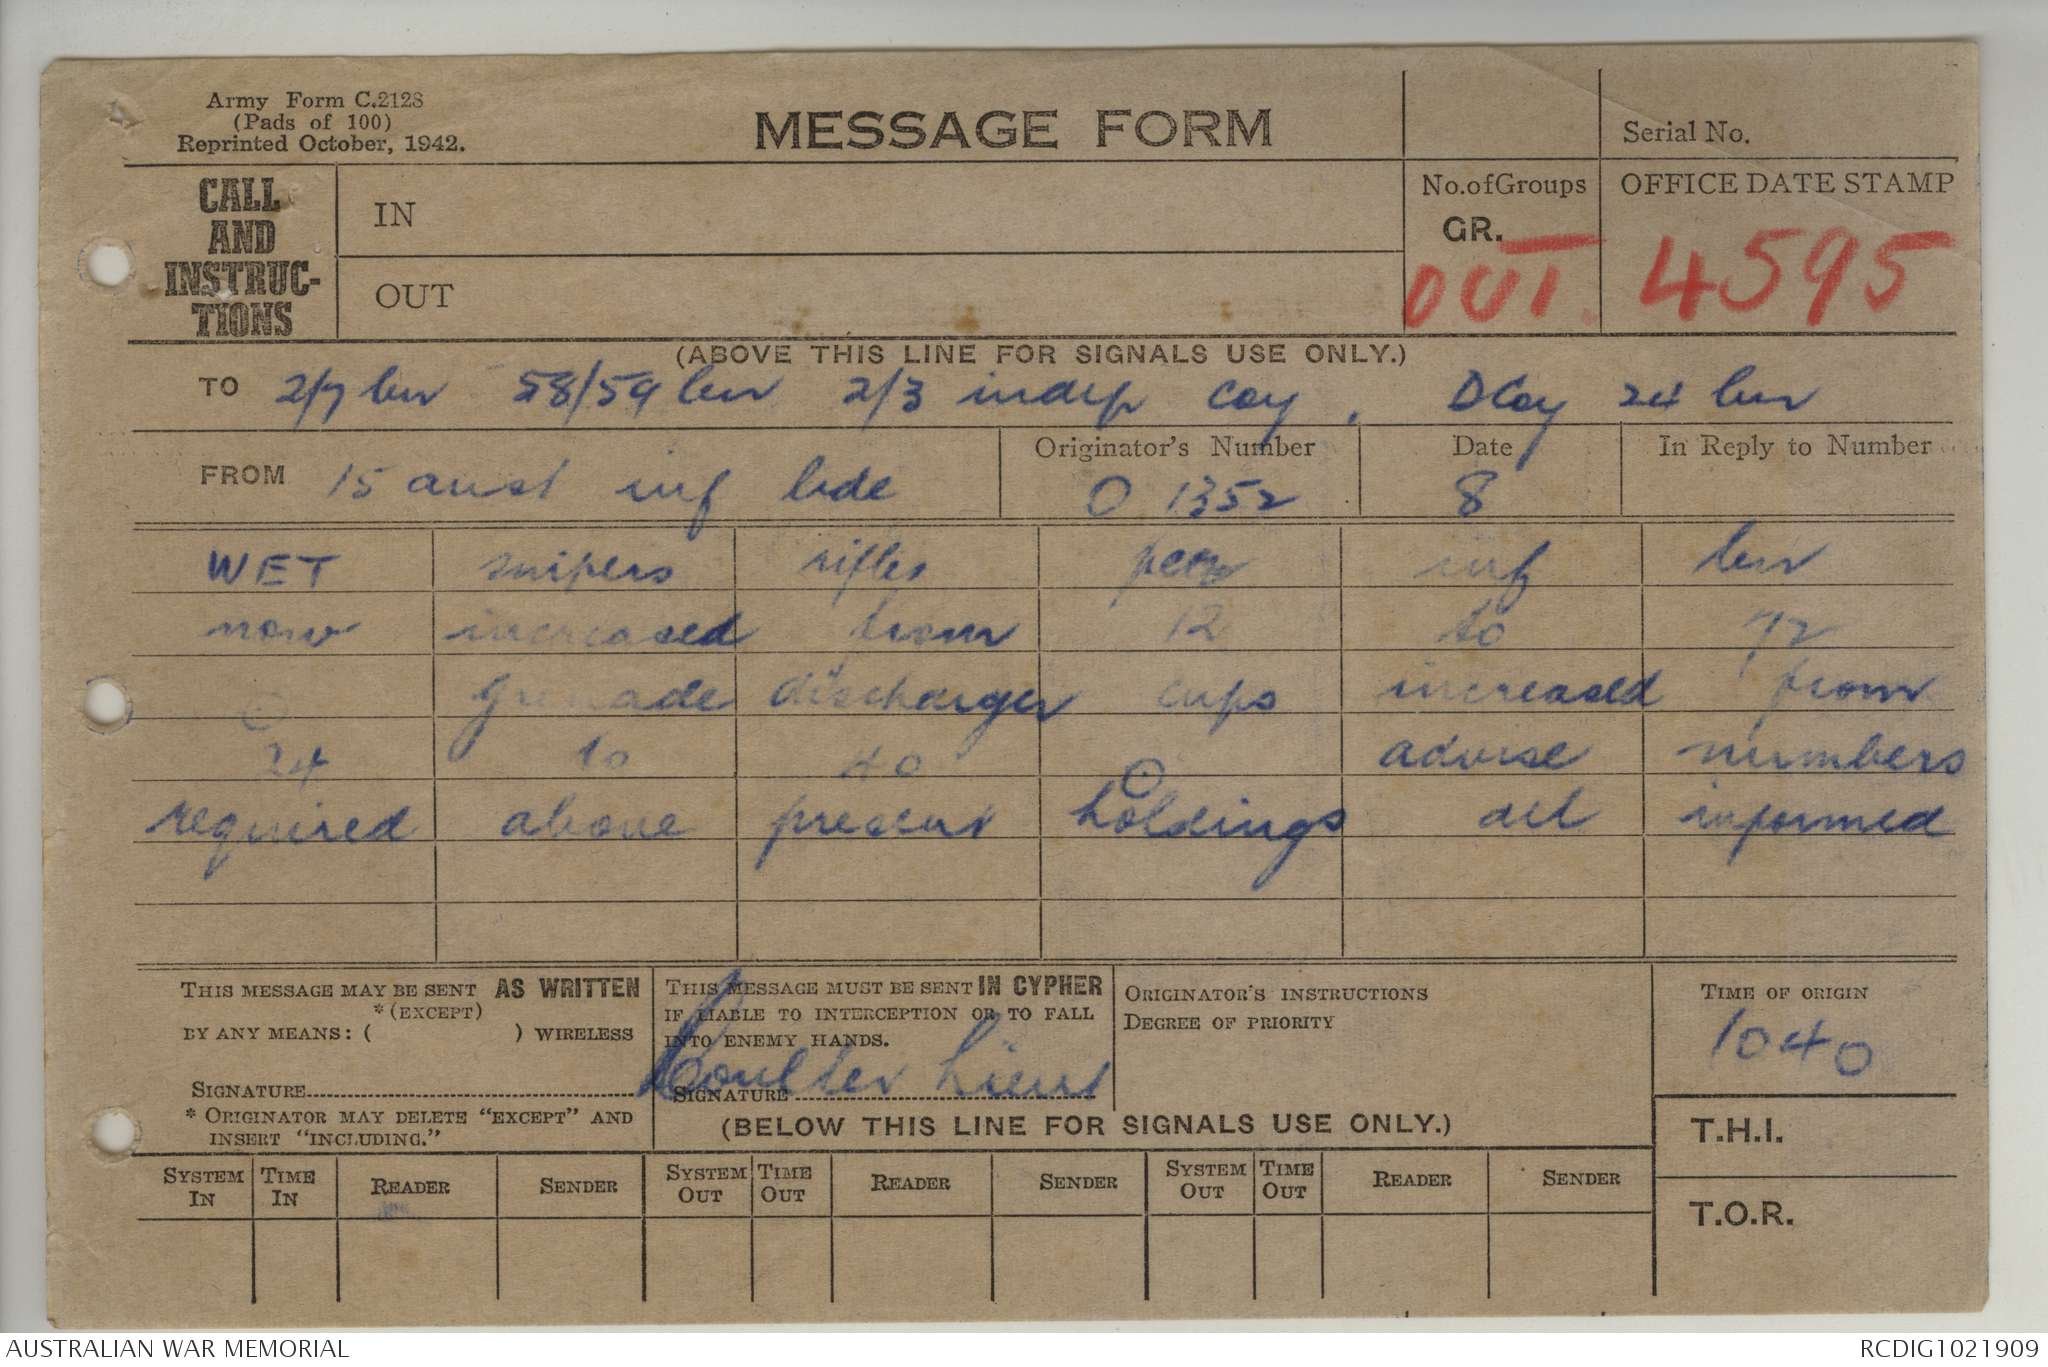 Army Form C.2128
(Pads of 100)
Reprinted October, 1942.
MESSAGE FORM
Serial No.
CALL
AND
INSTRUC-
TIONS
IN
OUT
No.ofGroups
GR.
OUT
OFFICE DATE STAMP
4595
(ABOVE THIS LINE FOR SIGNALS USE ONLY.)
TO 2/7 bn 58/59 bn 2/3 indep coy, D Coy 24 bn
FROM 15 aust inf bde
Originator's Number
O 1352
Date
8
In Reply to Number
WET snipers rifles per inf bn
now increased from 12 to 72
⊙ grenade discharger cups increased from
24 to 40 ⊙ advise numbers
required above present holdings all informed
THIS MESSAGE MAY BE SENT AS WRITTEN
*(EXCEPT)
BY ANY MEANS: ( ) WIRELESS
SIGNATURE
* ORIGINATOR MAY DELETE "EXCEPT" AND
INSERT "INCLUDING."
THIS MESSAGE MUST BE SENT IN CYPHER
IF LIABLE TO INTERCEPTION OR TO FALL
INTO ENEMY HANDS.
SIGNATURE Coulter Lieut
ORIGINATOR'S INSTRUCTIONS
DEGREE OF PRIORITY
TIME OF ORIGIN
1040
(BELOW THIS LINE FOR SIGNALS USE ONLY.)
T.H.I.
T.O.R.
SYSTEM IN TIME IN READER SENDER SYSTEM OUT TIME OUT READER SENDER SYSTEM OUT TIME OUT READER SENDER
AUSTRALIAN WAR MEMORIAL
RCDIG1021909